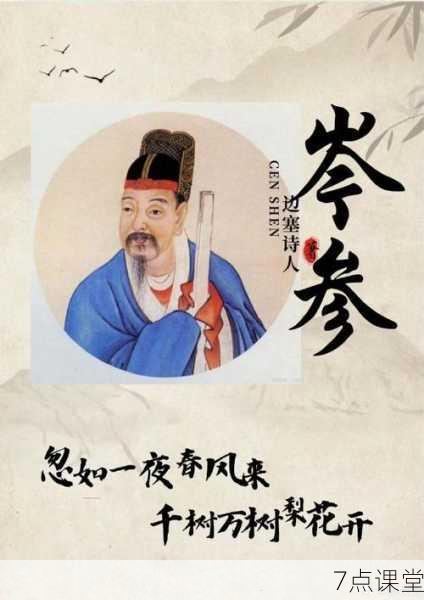 岑参
边塞诗人
CEN SHEN
忽如一夜春风来
千树万树梨花开
7点课堂